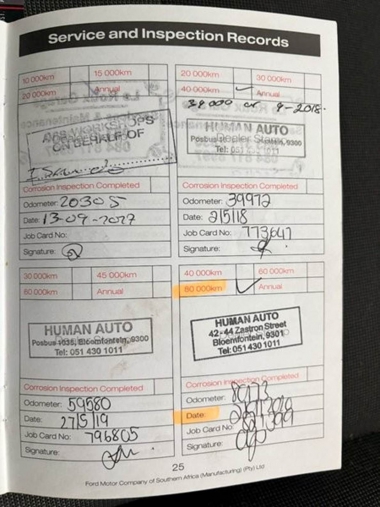 Service and Inspection Records
10 000km 15 000km
20 000km Annual
ON BEHALF OF
Corrosion Inspection Completed
Odometer: 20305
Date: 13-09-2027
Job Card No:
Signature:
20 000km 30 000km
40 000km Annual
39000 4-2018
HUMAN AUTO
Tel:
Corrosion Inspection Completed
Odometer: 39972
Date: 2/5/18
Job Card No: 773641
Signature:
30 000km 45 000km
60 000km Annual
HUMAN AUTO
Posbus 1035, Bloemfontein, 9300
Tel: 051 430 1011
Corrosion Inspection Completed
Odometer: 59580
Date: 27/5/19
Job Card No: 796805
Signature:
40 000km 60 000km
80 000km Annual
HUMAN AUTO
42-44 Zastron Street
Bloemfontein, 9301
Tel: 051 430 1011
Corrosion Inspection Completed
Odometer:
Date:
Job Card No:
Signature:
25
Ford Motor Company of Southern Africa (Manufacturing) (Pty) Ltd